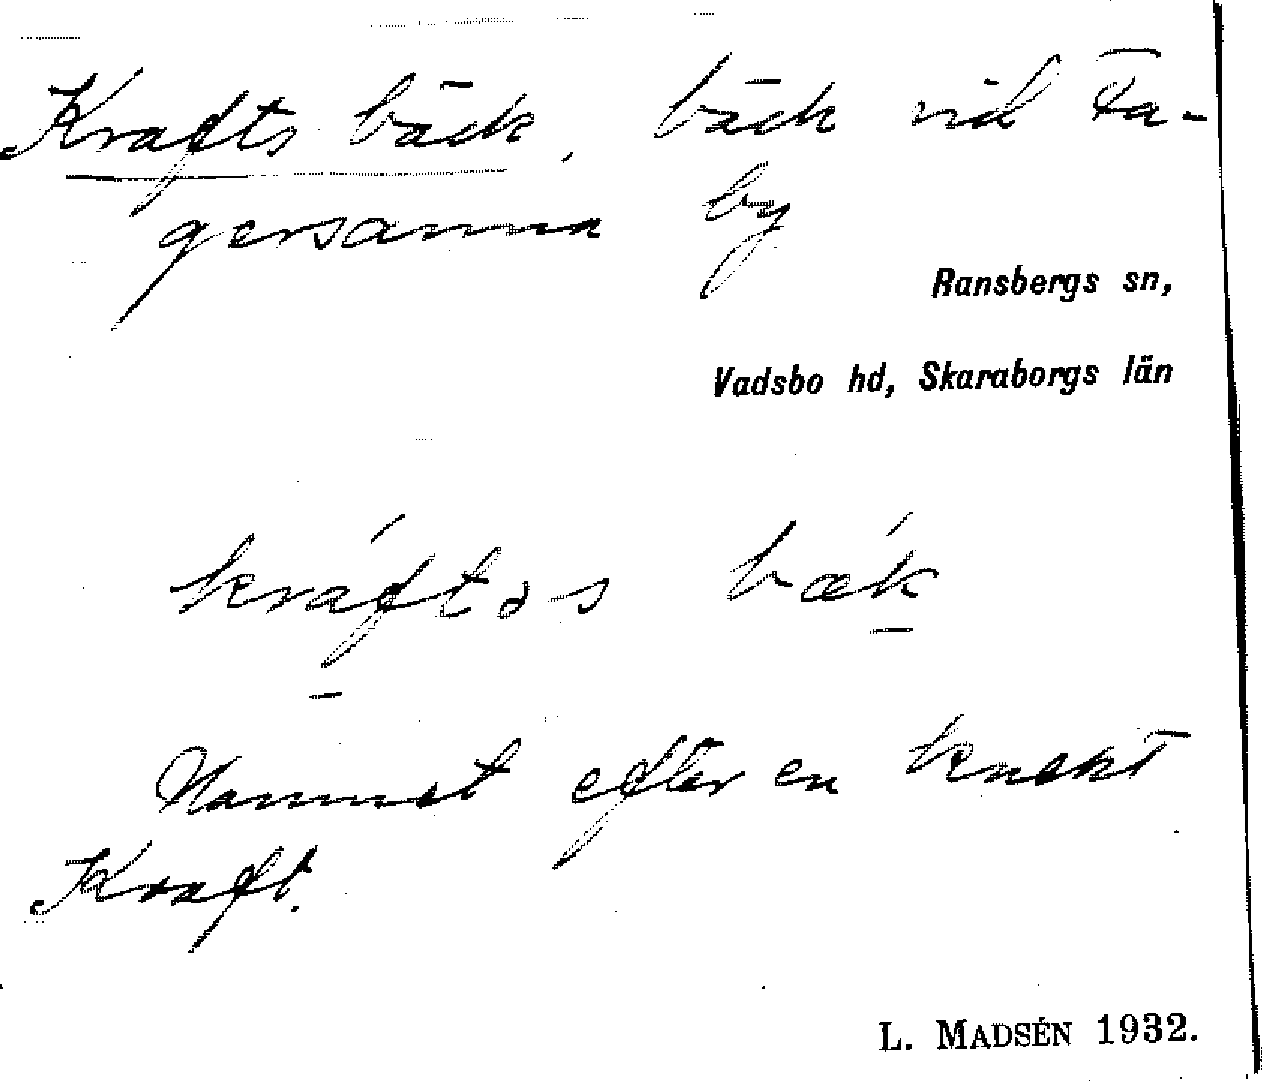 Krafts bäck, bäck vid Fa-
gersanna by
Ransbergs sn,
Vadsbo hd, Skaraborgs län
kráftəs bǽk
Namnet efter en knekt
Kraft.
L. MADSÉN 1932.